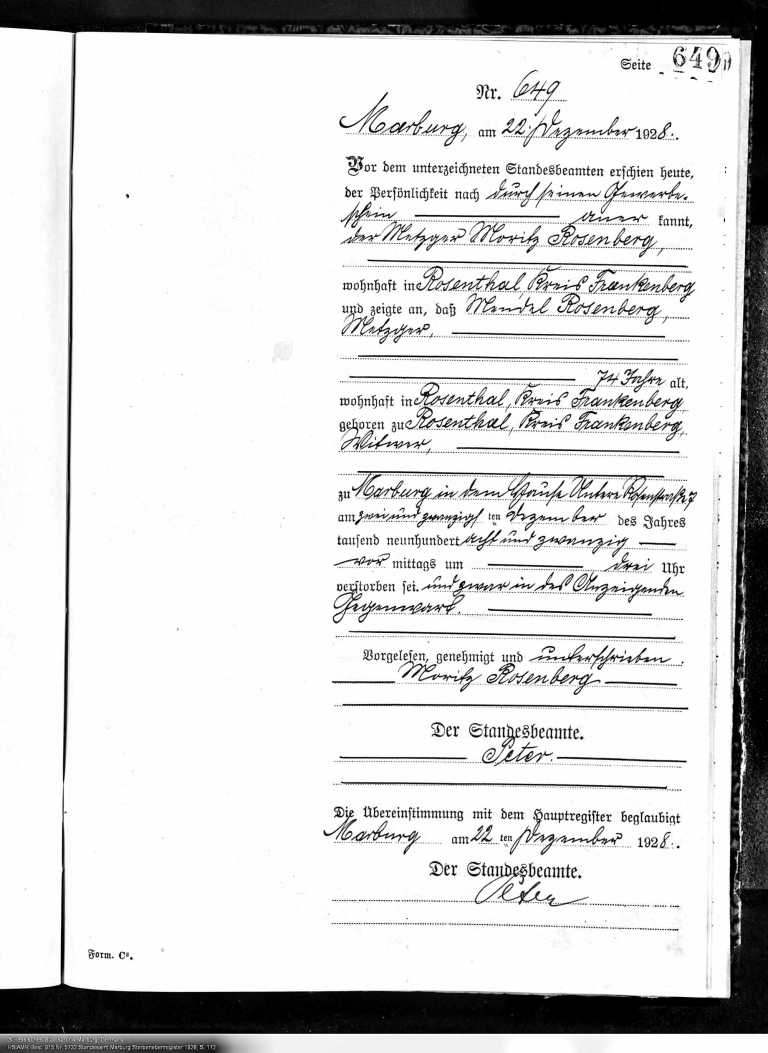 Seite 649
Nr. 649
Marburg, am 22. Dezember 1928.
Vor dem unterzeichneten Standesbeamten erschien heute,
der Persönlichkeit nach durch seinen Gewerbe-
schein anerkannt,
der Metzger Moritz Rosenberg,
wohnhaft in Rosenthal, Kreis Frankenberg
und zeigte an, daß Mendel Rosenberg,
Metzger,
74 Jahre alt,
wohnhaft in Rosenthal, Kreis Frankenberg,
geboren zu Rosenthal, Kreis Frankenberg,
Witwer,
zu Marburg in dem Hause Untere Rosenstraße 7
am zwei und zwanzigsten Dezember des Jahres
tausend neunhundert acht und zwanzig
vor mittags um drei Uhr
verstorben sei. und zwar in des Anzeigenden
Gegenwart.
Vorgelesen, genehmigt und unterschrieben.
Moritz Rosenberg
Der Standesbeamte.
Peter.
Die Übereinstimmung mit dem Hauptregister beglaubigt
Marburg am 22 ten Dezember 1928.
Der Standesbeamte.
Peter
Form. C